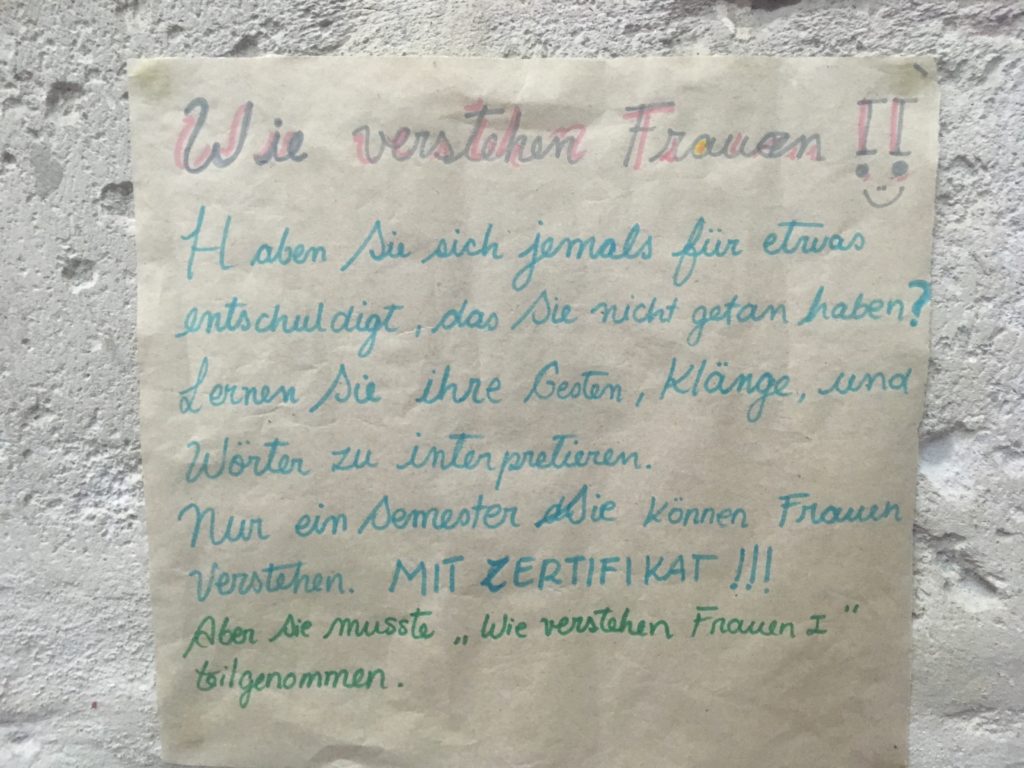 Wie verstehen Frauen II
Haben Sie sich jemals für etwas
entschuldigt, das Sie nicht getan haben?
Lernen Sie ihre Gesten, Klänge, und
Wörter zu interpretieren.
Nur ein Semester Sie können Frauen
verstehen. MIT ZERTIFIKAT !!!
Aber Sie musste „Wie verstehen Frauen I"
teilgenommen.